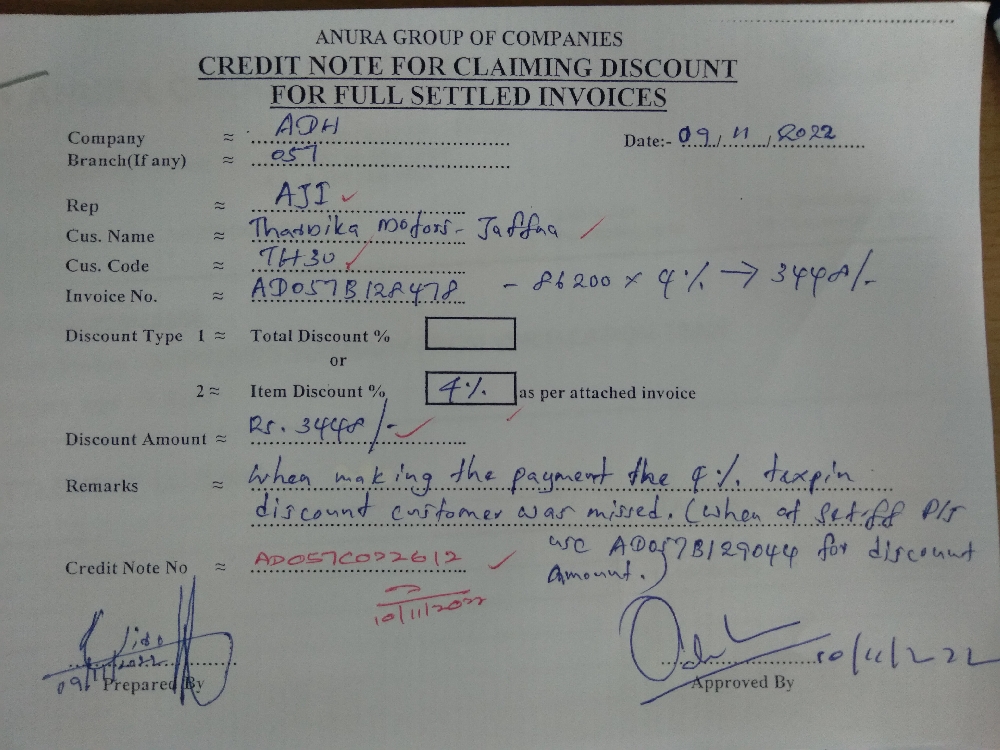 ANURA GROUP OF COMPANIES
CREDIT NOTE FOR CLAIMING DISCOUNT
FOR FULL SETTLED INVOICES
Company ≈ ADH Date:- 09/11/2022
Branch(If any) ≈ 057
Rep ≈ AJI
Cus. Name ≈ Tharvika Motors - Jaffna
Cus. Code ≈ TH30
Invoice No. ≈ AD057B128478 - 86200 × 4% → 3448/-
Discount Type 1 ≈ Total Discount %
or
2 ≈ Item Discount % 4% as per attached invoice
Discount Amount ≈ Rs. 3448/-
Remarks ≈ When making the payment the 4% taxpin
discount customer was missed. (When at set-off pls
use AD057B129044 for discount
amount.)
Credit Note No ≈ AD057C022612
10/11/2022
09/11/2022
Prepared By
10/11/2022
Approved By